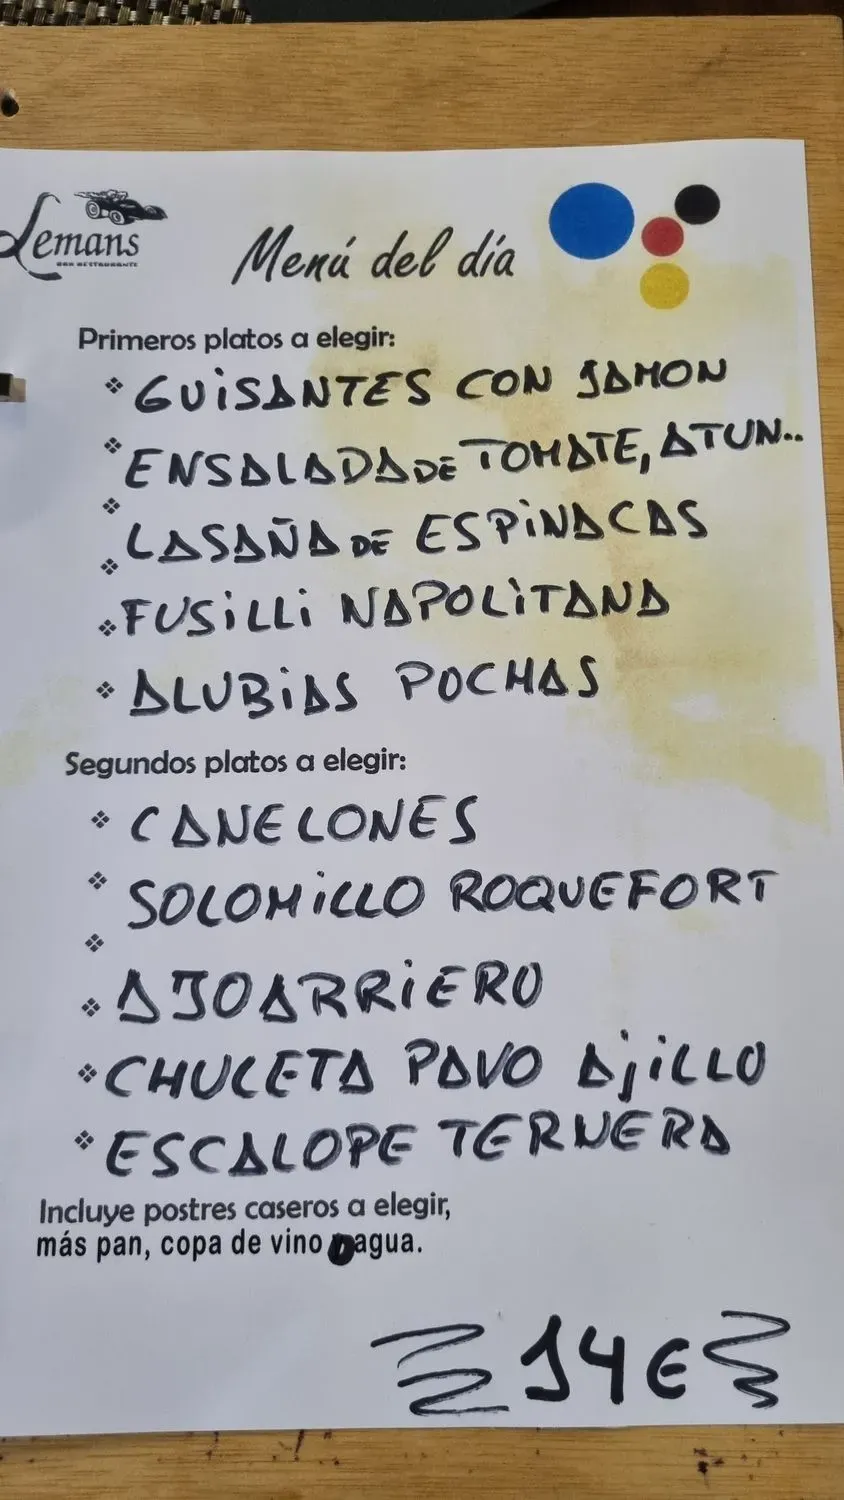 Lemans
BAR RESTAURANTE
Menú del día
Primeros platos a elegir:
GUISANTES CON JAMON
ENSALADA DE TOMATE, ATUN..
LASAÑA DE ESPINACAS
FUSILLI NAPOLITANA
ALUBIAS POCHAS
Segundos platos a elegir:
CANELONES
SOLOMILLO ROQUEFORT
AJOARRIERO
CHULETA PAVO AJILLO
ESCALOPE TERNERA
Incluye postres caseros a elegir,
más pan, copa de vino o agua.
14€